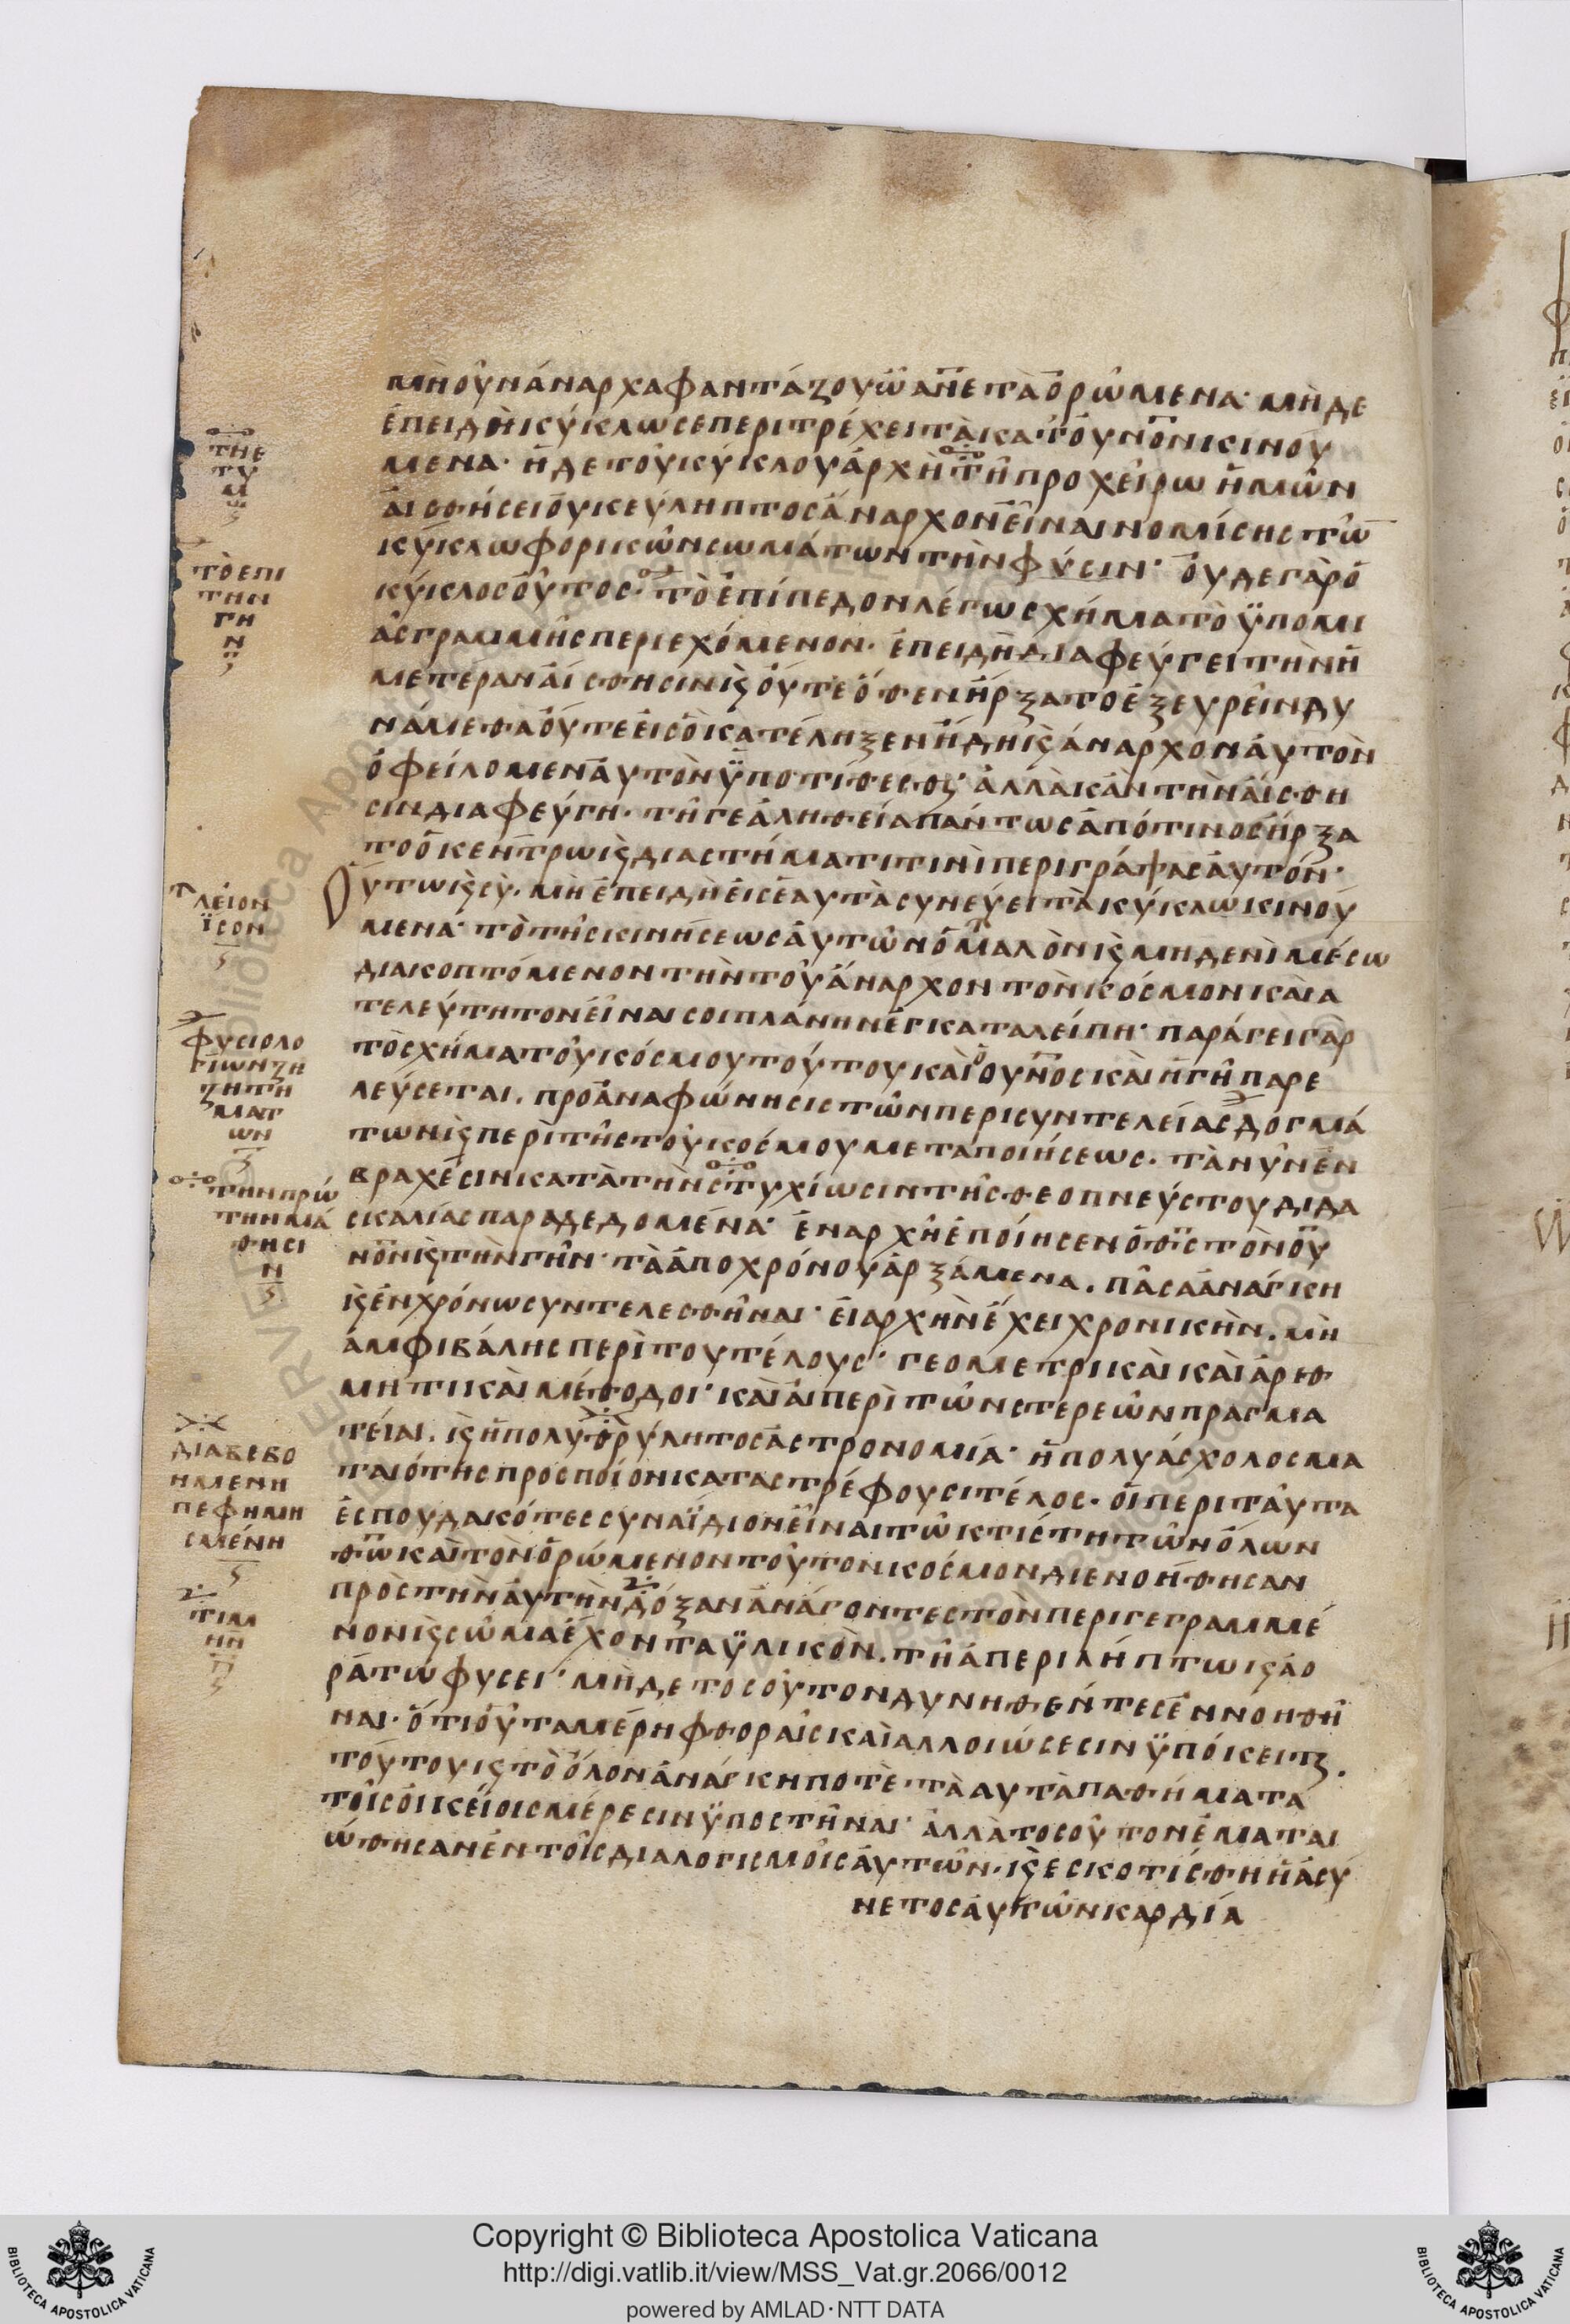 ΜῊΟΥ̓ΝἌΝΑΡΧΑΦΑΝΤΆΖΟΥΩ̈ΑΝ̅Ε̅ΤᾺὉΡΏΜΕΝΑ· ΜῊΔΕ
ἘΠΕΙΔῊΚΎΚΛΩΣΕΠΕΡΙΤΡΈΧΕΙΤᾺΚΑΤΟΥΝ̅ΟΝΚΙΝΟΎ
ΜΕΝΑ· ἩΔΕΤΟΥ͂ΚΎΚΛΟΥἈΡΧῊΤΗ͂ΠΡΟΧΕΊΡΩἩΜΩ͂Ν
ΑἸΣΘΉΣΕΙΟΥ̓ΚΕΎΛΗΠΤΟΣἌΝΑΡΧΟΝΕἾΝΑΙΝΟΜΊΣΗΣΤΩ͂̅
ΚΎΚΛΩΦΟΡΙΚΩ͂ΝΣΩΜΆΤΩΝΤῊΝΦΎΣΙΝ· ΟΥ̓ΔΕΓᾺΡὉ
ΚΎΚΛΟΣΟὟΤΟΣ· ΤῸἘΠΊΠΕΔΟΝΛΈΓΩΣΧΉΜΑΤῸΫΠΟΜΙ
ΑΣΓΡΑΜΜΗ͂ΣΠΕΡΙΕΧΌΜΕΝΟΝ· ἘΠΕΙΔῊΔΙΑΦΕΎΓΕΙΤῊΝἩ
ΜΕΤΈΡΑΝΑἼΣΘΗΣΙΝϏΟΥ̓́ΤΕὍΘΕΝἬΡΞΑΤΟἘΞΕΥΡΕΙ͂ΝΔΥ
ΝΆΜΕΘΑΟΥ̓́ΤΕΕἸΣὉΚΑΤΈΛΗΞΕΝἬΔΗϏἌΝΑΡΧΟΝΑΥ̓ΤῸΝ
ὈΦΕΊΛΟΜΕΝΑΥ̓ΤῸΝΫΠΟΤΊΘΕΣΘϏ· ἈΛΛᾺΚἊΝΤῊΝΑἼΣΘΗ
ΣΙΝΔΙΑΦΕΎΓΗ· ΤΗ͂ΓΕἈΛΗΘΕΊΑΠΆΝΤΩΣἈΠΌΤΙΝΟΣἬΡΞΑ
ΤΟὉΚΕΝΤΡΩϏΔΙΑΣΤΉΜΑΤΙΤΙΝῚΠΕΡΙΓΡΆΨΑΣΑΥ̓ΤΌΝ·
ΟΥΤΩϏΣῪ· ΜῊἘΠΕΙΔῊΕἸΣἙΑΥΤᾺΣΥΝΕΎΕΙΤᾺΚΎΚΛΩΚΙΝΟΎ
ΜΕΝΑ· ΤῸΤΗ͂ΣΚΙΝΉΣΕΩΣΑΥ̓ΤΩ͂ΝὉΜΑΛῸΝϏΜΗΔΕΝῚΜΈΣΩ
ΔΙΑΚΟΠΤΌΜΕΝΟΝΤῊΝΤΟΥ͂ἌΝΑΡΧΟΝΤῸΝΚΌΣΜΟΝΚΑῚΑ
ΤΕΛΕΎΤΗΤΟΝΕἾΝΑΙΣΟΙΠΛΆΝΗΝἘΓΚΑΤΑΛΕΊΠΗ· ΠΑΡΆΓΕΙΓᾺΡ
ΤῸΣΧΉΜΑΤΟΥ͂ΚΌΣΜΟΥΤΟΎΤΟΥΚΑῚὉΟΥΝ̅ΟΣΚΑῚἩΓΗ͂ΠΑΡΕ
ΛΕΎΣΕΤΑΙ. ΠΡΟΑΝΑΦΏΝΗΣΙΣΤΩ͂ΝΠΕΡΙΣΥΝΤΕΛΕΊΑΣΔΟΓΜΆ
ΤΩΝϏΠΕΡῚΤΗ͂ΣΤΟΥ͂ΚΌΣΜΟΥΜΕΤΑΠΟΙΉΣΕΩΣ· ΤᾺΝΥ͂ΝἘΝ
ΒΡΑΧΈΣΙΝΚΑΤᾺΤῊΝΣΤΥΧΊΩΣΙΝΤΗ͂ΣΘΕΟΠΝΕΎΣΤΟΥΔΙΔΑ
ΣΚΑΛΊΑΣΠΑΡΑΔΕΔΟΜΈΝΑ· ἘΝΑΡΧΗ͂ἘΠΟΊΗΣΕΝὉΘ̅Σ̅ΤῸΝΟΥ̅
Ν̅Ο̅ΝϏΤῊΝΓΗ͂Ν· ΤᾺἈΠΟΧΡΌΝΟΥἈΡΞΆΜΕΝΑ. ΠΑ͂ΣΑἈΝΆΓΚΗ
ϏἘΝΧΡΌΝΩΣΥΝΤΕΛΕΣΘΗ͂ΝΑΙ· ΕἸΑΡΧῊΝἜΧΕΙΧΡΟΝΙΚῊΝ. ΜῊ
ἈΜΦΙΒΆΛΗΣΠΕΡῚΤΟΥΤΈΛΟΥΣ· ΓΕΟΜΕΤΡΙΚΑῚΚΑῚἈΡΙΘ
ΜΗΤΙΚΑῚΜΈΘΟΔΟΙ· ΚΑῚΑἹΠΕΡῚΤΩ͂ΝΣΤΕΡΕΩ͂ΝΠΡΑΓΜΑ
ΤΕΊΑΙ. ϏἩΠΟΛΥΘΡΎΛΗΤΟΣἈΣΤΡΟΝΟΜΊΑ· ἩΠΟΛΥΆΣΧΟΛΟΣΜΑ
ΤΑΙΌΤΗΣΠΡΟΣΠΟΙ͂ΟΝΚΑΤΑΣΤΡΈΦΟΥΣΙΤΈΛΟΣ· ΟἹΠΕΡΙΤΑΥ͂ΤΑ
ἘΣΠΟΥΔΑΚΌΤΕΣΣΥΝΑΪ́ΔΙΟΝΕἾΝΑΙΤΩ͂ΚΤΊΣΤΗΤΩ͂ΝὍΛΩΝ
Θ̅Ω̅ΚΑῚΤῸΝὉΡΏΜΕΝΟΝΤΟΥ͂ΤΟΝΚΌΣΜΟΝΔΙΕΝΟΉΘΗΣΑΝ
ΠΡῸΣΤῊΝΑΥ̓ΤῊΝΔΌΞΑΝἈΝΆΓΟΝΤΕΣΤῸΝΠΕΡΙΓΕΓΡΑΜΜΈ
ΝΟΝϏΣΩ͂ΜΑἜΧΟΝΤΑΫΛΙΚῸΝ. ΤΗ͂ἈΠΕΡΙΛΉΠΤΩϏΑΟ
ΡΆΤΩΦΥΣΕΙ· ΜῊΔΕΤΟΣΟΥ͂ΤΟΝΔΥΝΗΘΈΝΤΕΣἘΝΝΟΗΘΗ͂
ΝΑΙ· ὍΤΙΟὟΤΑΜΈΡΗΦΘΟΡΑΙ͂ΣΚΑῚΑΛΛΟΙΏΣΕΣΙΝΫΠΌΚΕΙΤϏ.
ΤΟΎΤΟΥϏΤῸὍΛΟΝἈΝΆΓΚΗΠΟΤῈΤᾺΑΥΤᾺΠΑΘΉΜΑΤΑ
ΤΟΙ͂ΣΟἸΚΕΊΟΙΣΜΈΡΕΣΙΝΫΠΟΣΤΗ͂ΝΑΙ· ἈΛΛᾺΤΟΣΟΥ͂ΤΟΝἘΜΑΤΑΙ
ΏΘΗΣΑΝἘΝΤΟΙ͂ΣΔΙΑΛΟΓΙΣΜΟΙ͂ΣΑΥ̓ΤΩ͂Ν. ϏἘΣΚΟΤΊΣΘΗἩἈΣΎ
ΝΕΤΟΣΑΥ̓ΤΩ͂ΝΚΑΡΔΊΑ
ΤΗΕ
ΤΥ
Μ
ΤῸΕΠΙ
ΤΗΝ
ΓΗ
Ν
ΛΕΙΟΝ
ΪΣΟΝ
ΦΥΣΙΟΛΟ
ΓΙΩΝΖΗ
ΖΗΤΗ
ΜΑΤ
ΩΝ
ΤΗΝΠΡΏ
ΤΗΝΜΆ
ΘΗΣΙ
Ν
ΔΙΑΒΕΒΟ
ΗΜΕΝΗ
ΠΕΦΗΜΗ
ΣΜΈΝΗ
ΤΙΜ
ΗΝ
Copyright © Biblioteca Apostolica Vaticana
http://digi.vatlib.it/view/MSS_Vat.gr.2066/0012
powered by AMLAD·NTT DATA
BIBLIOTECA APOSTOLICA VATICANA
BIBLIOTECA APOSTOLICA VATICANA